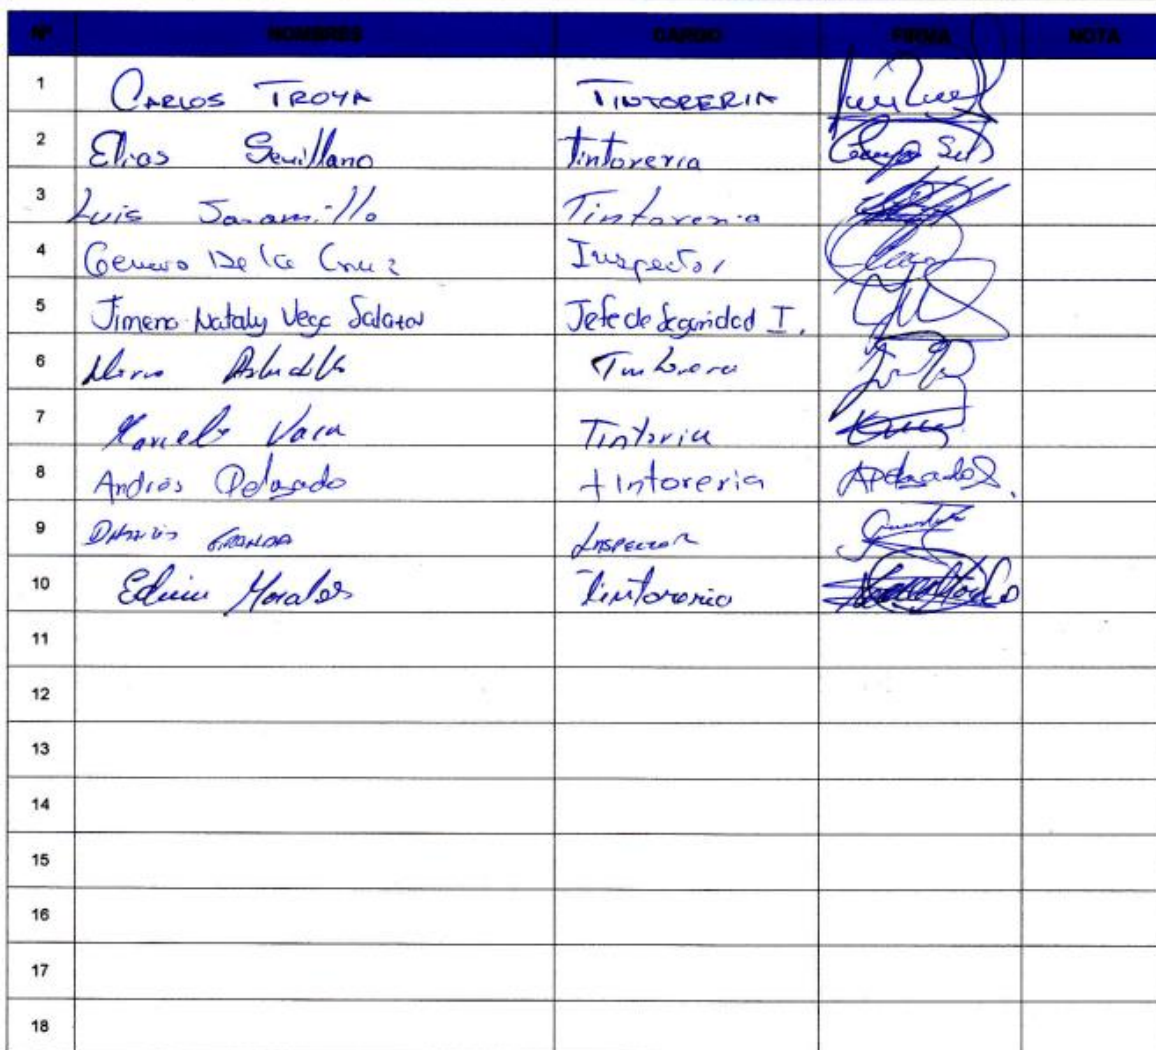 Nº NOMBRES CARGO FIRMA NOTA
1 CARLOS TROYA TINTORERIA
2 Elias Sevillano tintoreria
3 Luis Jaramillo Tintoreria
4 Genaro De la Cruz Inspector
5 Jimena Nataly Vega Salazar Jefe de Seguridad I.
6 Tintorero
7 Marcelo Vaca Tintoria
8 Andrés Delgado tintoreria
9 INSPECTOR
10 Edwin Morales Tintoreria
11
12
13
14
15
16
17
18